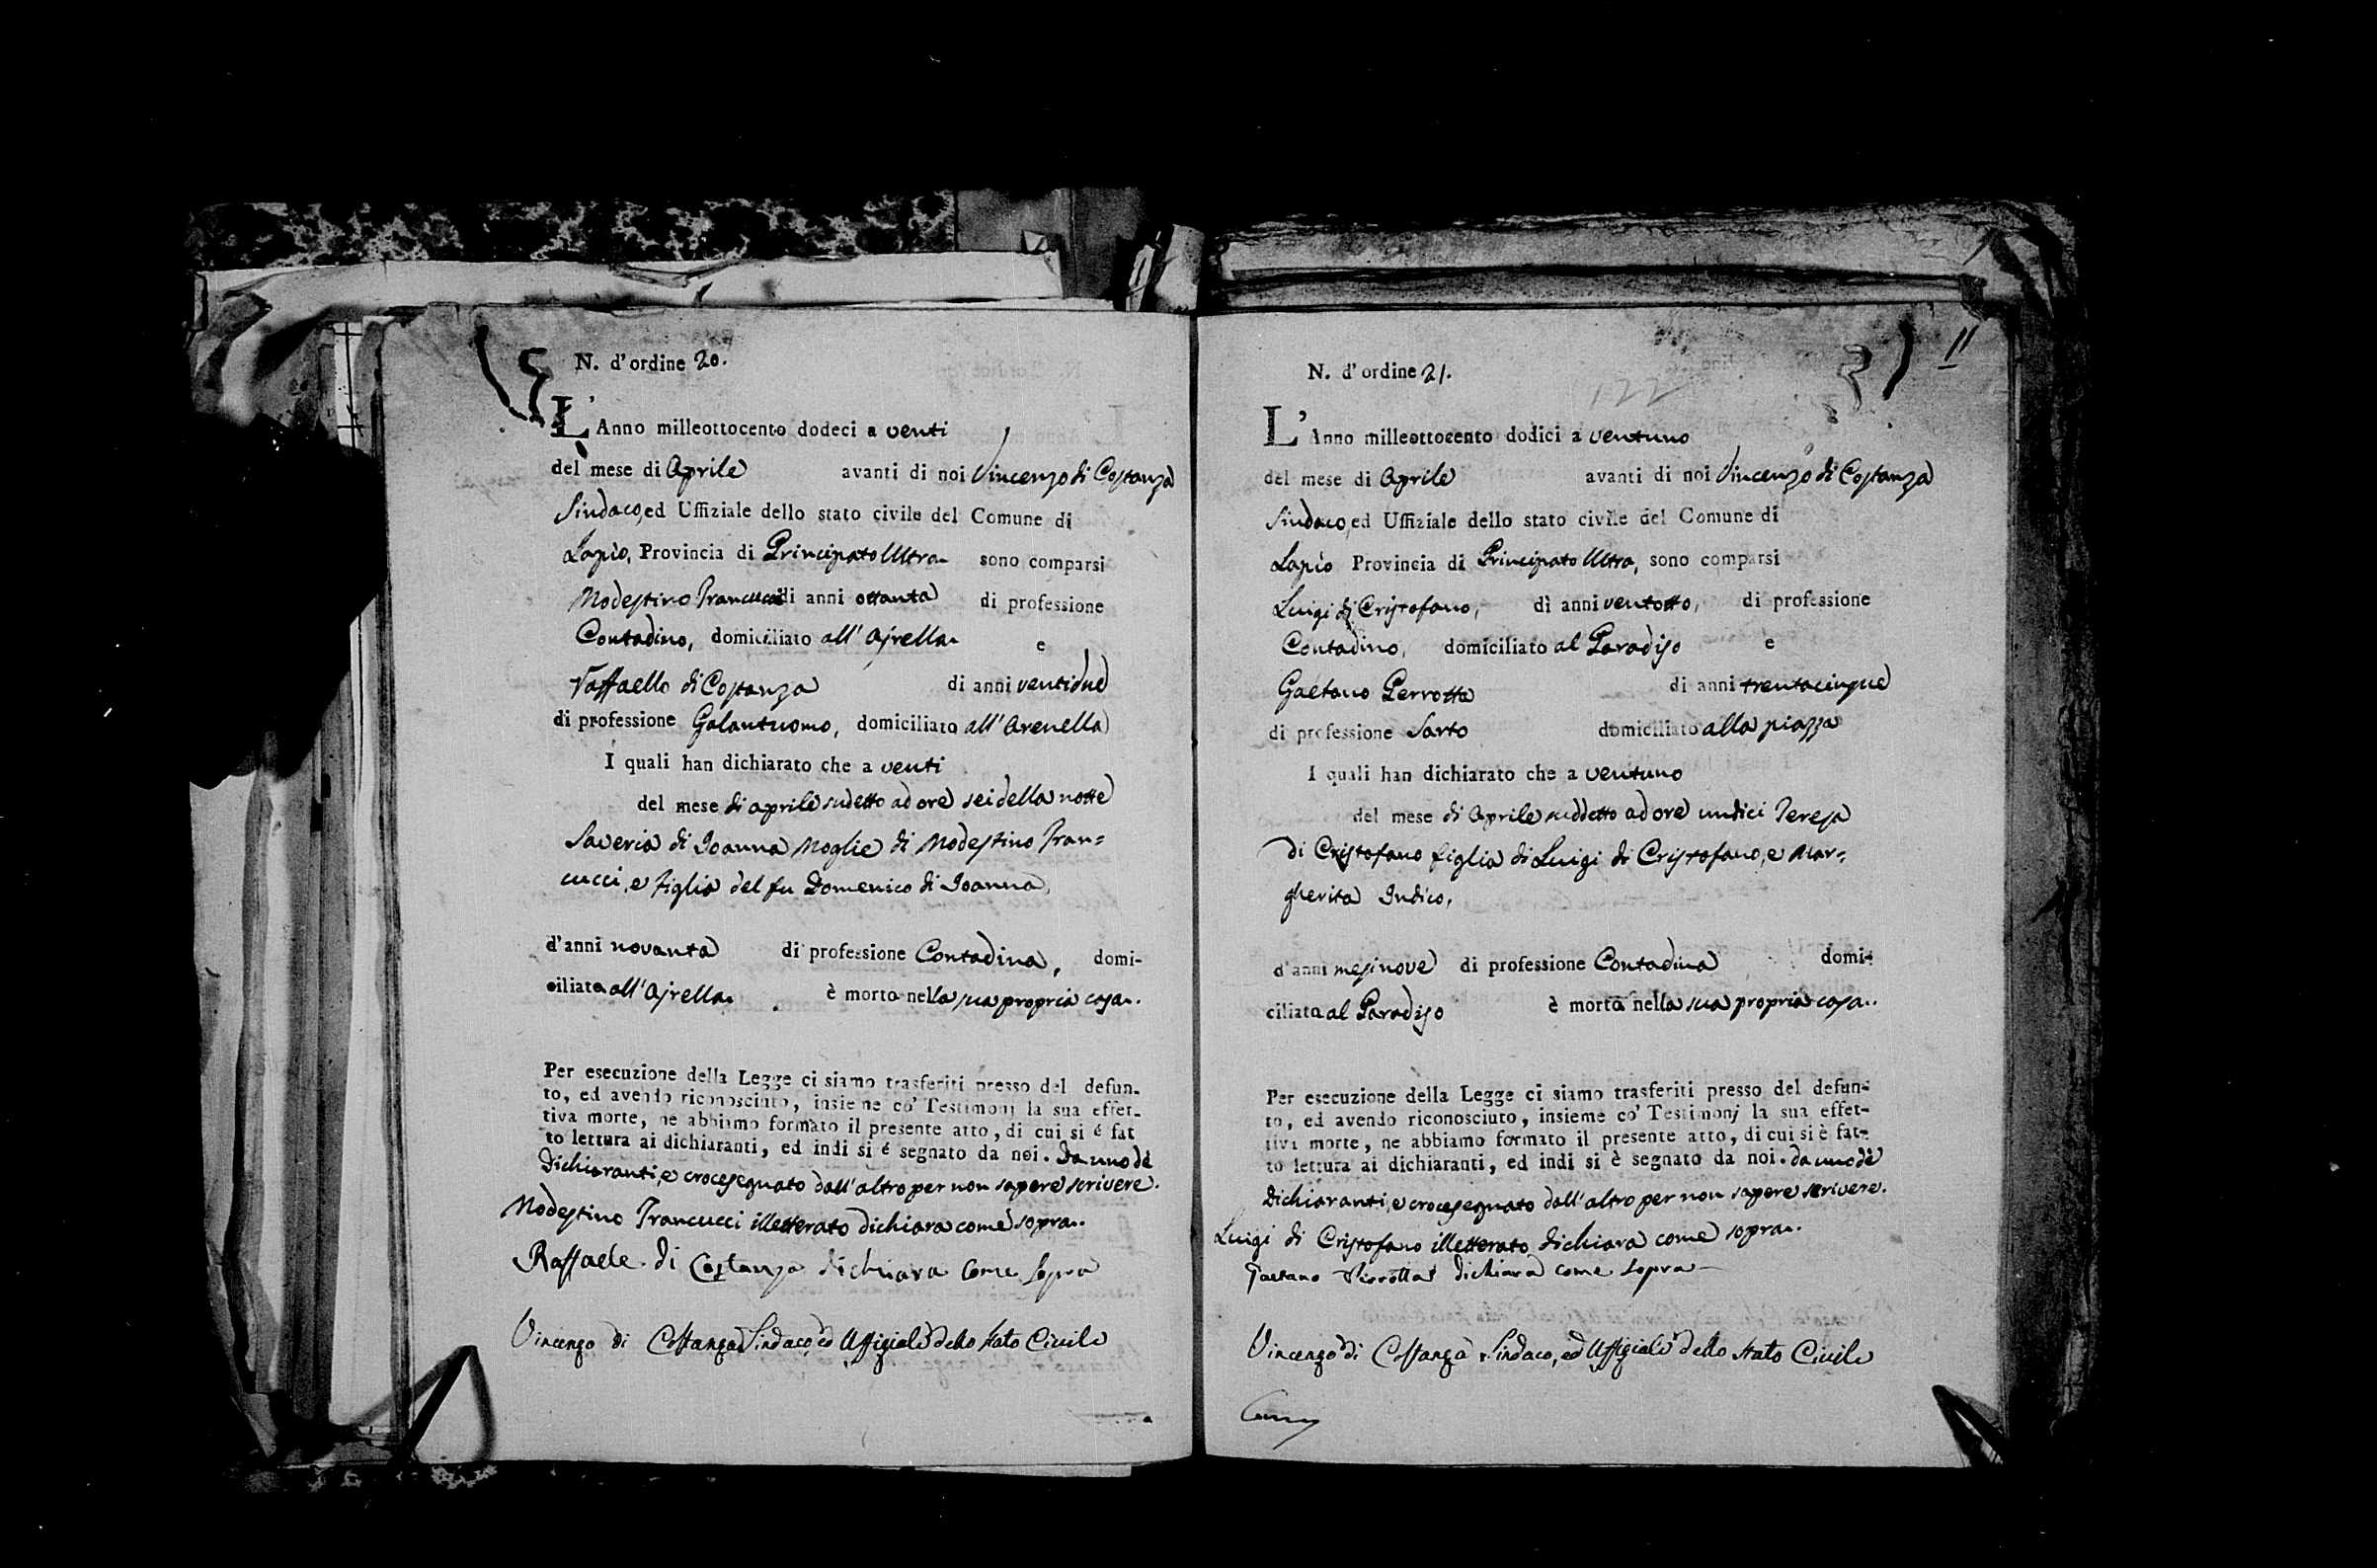 N. d'ordine 20.
L'Anno milleottocento dodeci a venti
del mese di Aprile avanti di noi Vincenzo di Costanza
Sindaco, ed Uffiziale dello stato civile del Comune di
Lapio, Provincia di Principato Ultra sono comparsi
Modestino Francucci di anni ottanta di professione
Contadino, domiciliato all' Ajrella e
Raffaello di Costanza di anni ventidue
di professione Galantuomo, domiciliato all' Arenella
I quali han dichiarato che a venti
del mese di aprile sudetto ad ore sei della notte
Saveria di Ioanna Moglie di Modestino Fran=
cucci, e Figlia del fu Domenico di Ioanna,
d'anni novanta di professione Contadina, domi-
ciliata all' Ajrella è morta nella sua propria casa.
Per esecuzione della Legge ci siamo trasferiti presso del defun-
to, ed avendo riconosciuto, insieme co' Testimonj la sua effet-
tiva morte, ne abbiamo formato il presente atto, di cui si é fat
to lettura ai dichiaranti, ed indi si é segnato da noi. Da uno dè
Dichiaranti, e crocesegnato dall' altro per non sapere scrivere.
Modestino Francucci illetterato dichiara come sopra.
Raffaele di Costanza dichiara come sopra
Vincenzo di Costanza Sindaco, ed Uffiziale dello stato Civile
11
N. d'ordine 21.
122
L'Anno milleottocento dodici a ventuno
del mese di Aprile avanti di noi Vincenzo di Costanza
Sindaco, ed Uffiziale dello stato civile del Comune di
Lapio Provincia di Principato Ultra, sono comparsi
Luigi di Cristofano, di anni ventotto, di professione
Contadino, domiciliato al Paradiso e
Gaetano Perrotta di anni trentacinque
di professione Sarto domiciliato alla piazza
I quali han dichiarato che a ventuno
del mese di Aprile suddetto ad ore undici Teresa
di Cristofano figlia di Luigi di Cristofano, e Mar=
gherita Indico,
d'anni mesi nove di professione Contadina domi-
ciliata al Paradiso è morta nella sua propria casa.
Per esecuzione della Legge ci siamo trasferiti presso del defun-
to, ed avendo riconosciuto, insieme co' Testimonj la sua effet-
tiva morte, ne abbiamo formato il presente atto, di cui si è fat-
to lettura ai dichiaranti, ed indi si è segnato da noi. da uno dè
Dichiaranti, e crocesegnato dall' altro per non sapere scrivere.
Luigi di Cristofano illetterato dichiara come sopra.
Gaetano Pirrotta dichiara come sopra
Vincenzo di Costanza Sindaco, ed Uffiziale dello stato Civile